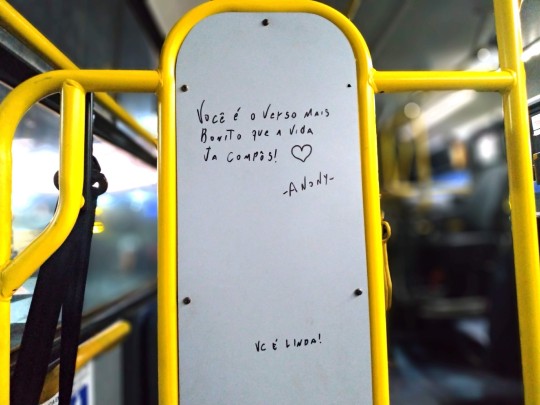 Você é o verso mais
Bonito que a vida
Ja compôs! ♡
-ANONY-
VC É LINDA!